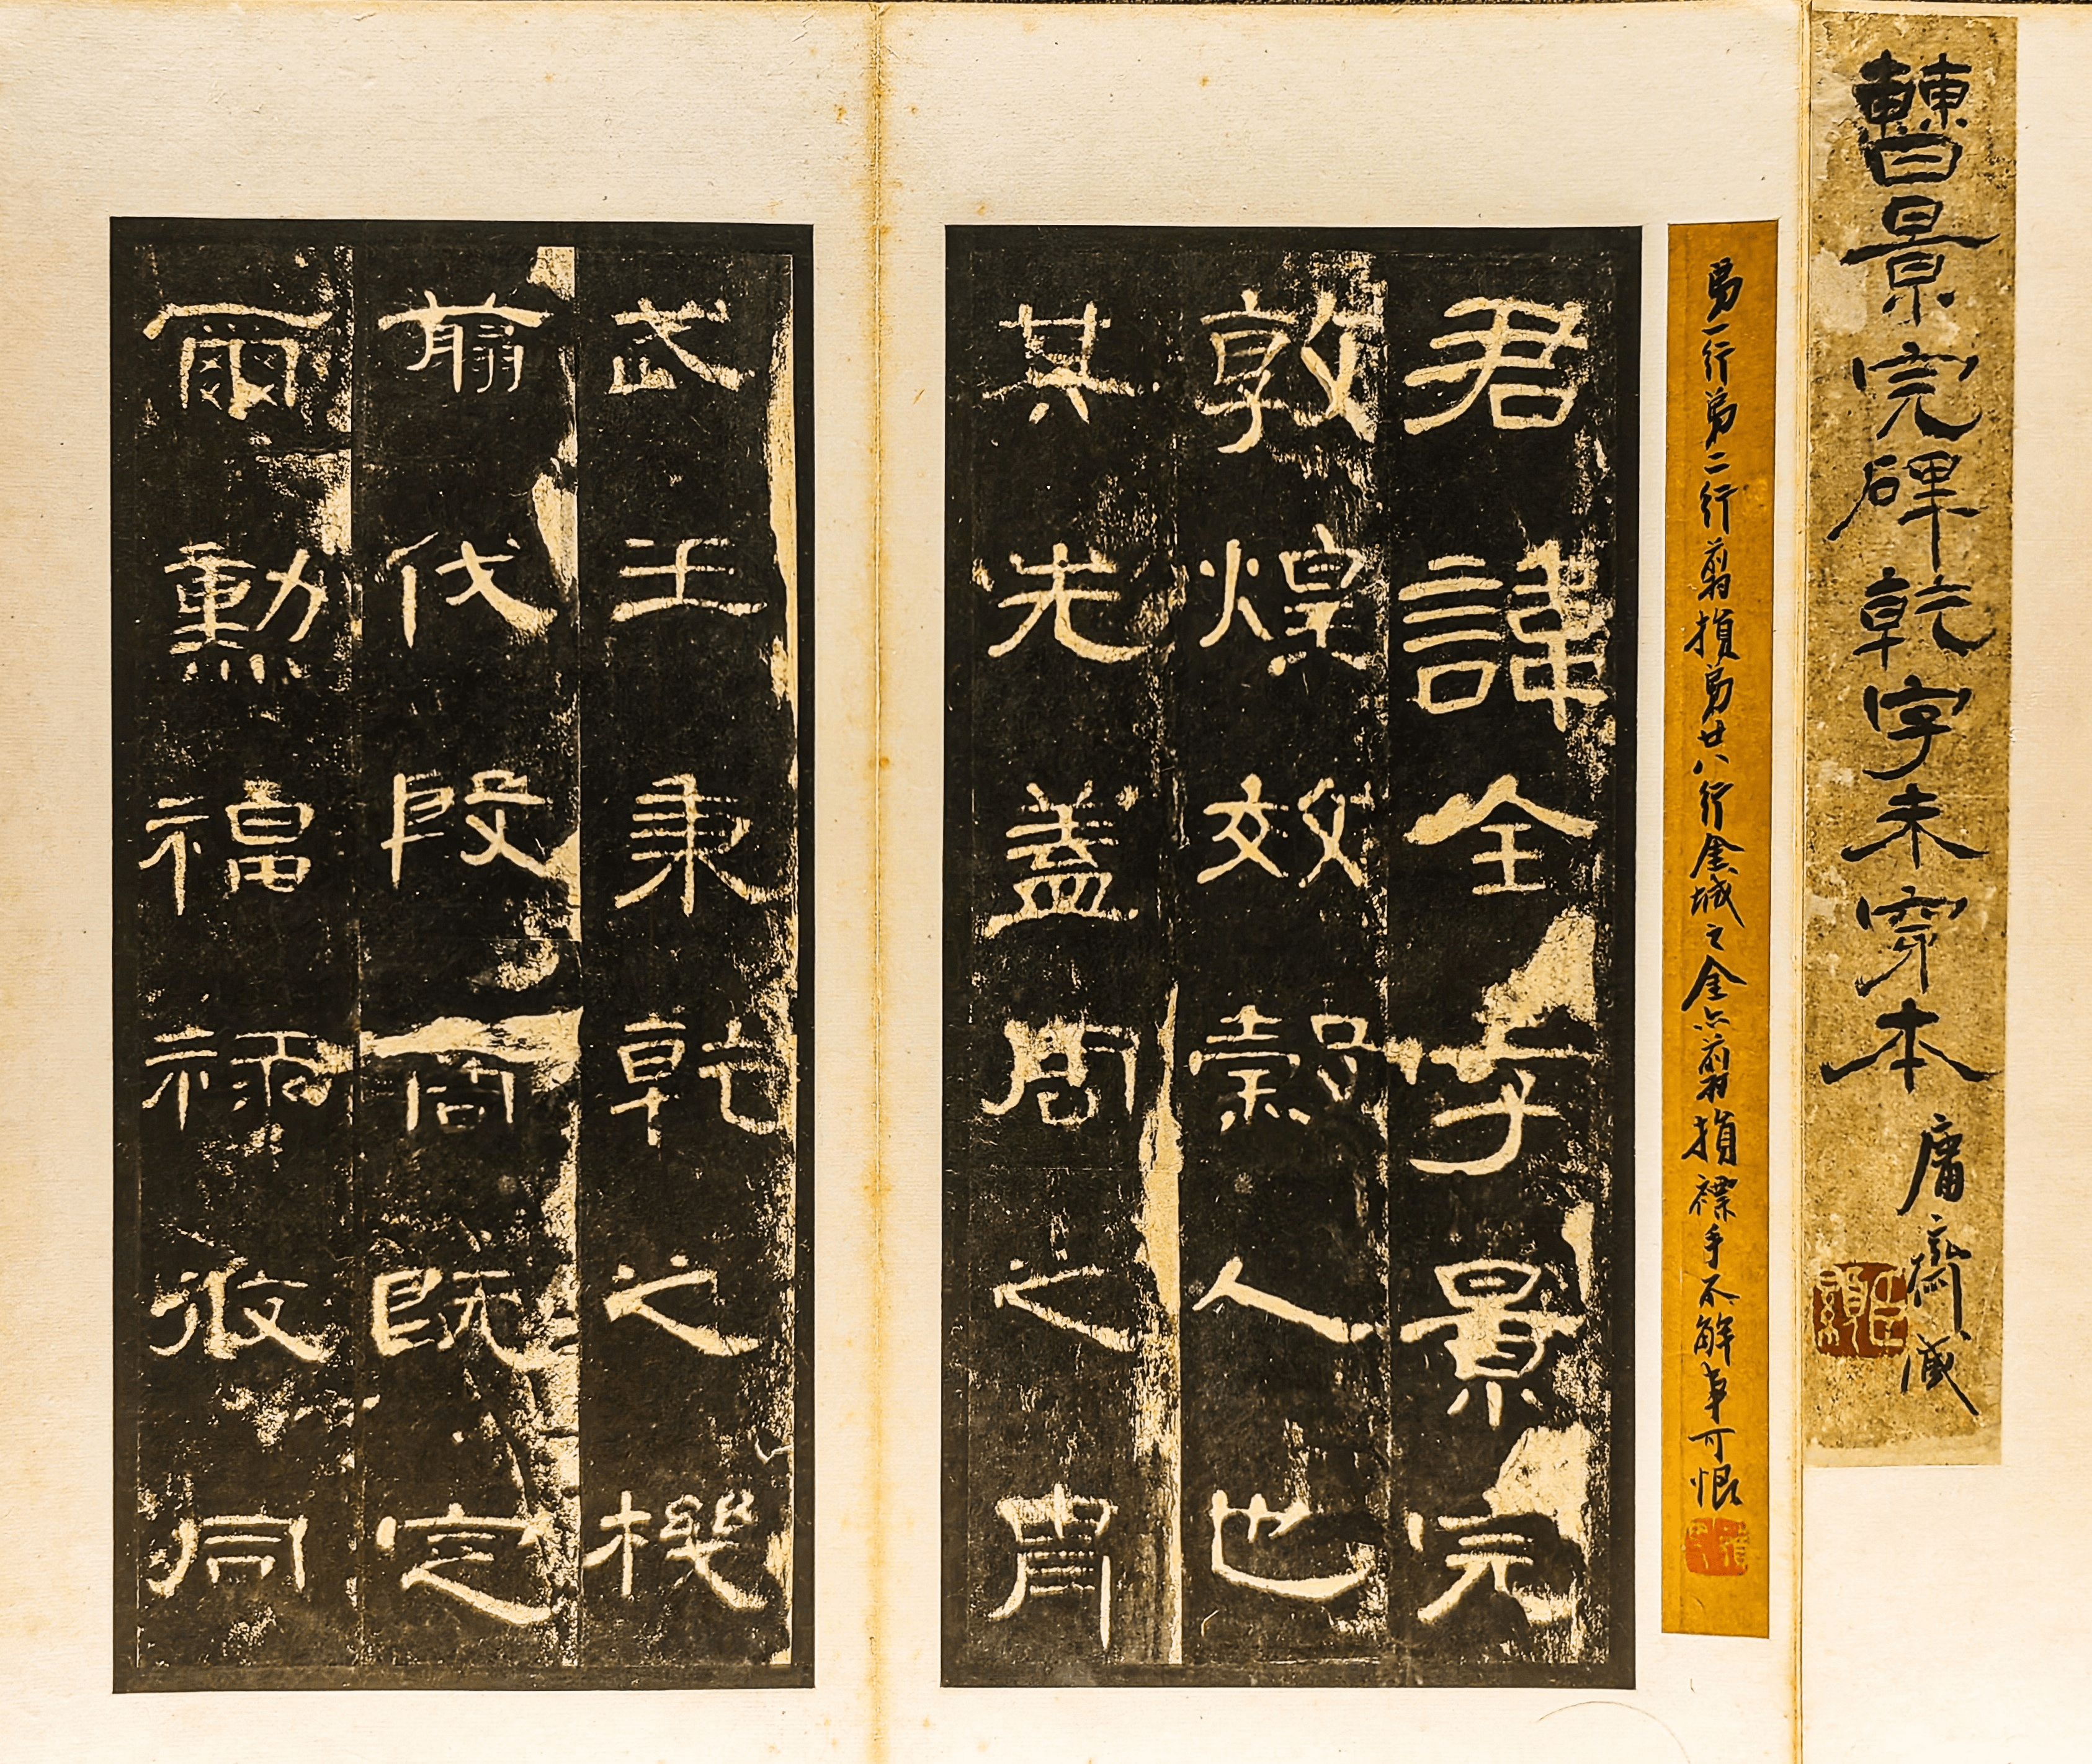 曹景完碑乾字未穿本
庸齋藏
弟一行弟二行翦損弟廿八行金城之金亦翦損褾手不解事可恨
君諱全字景完
敦煌效穀人也
其先蓋周之冑
武王秉乾之機
翦伐殷商既定
爾勳福祿攸同